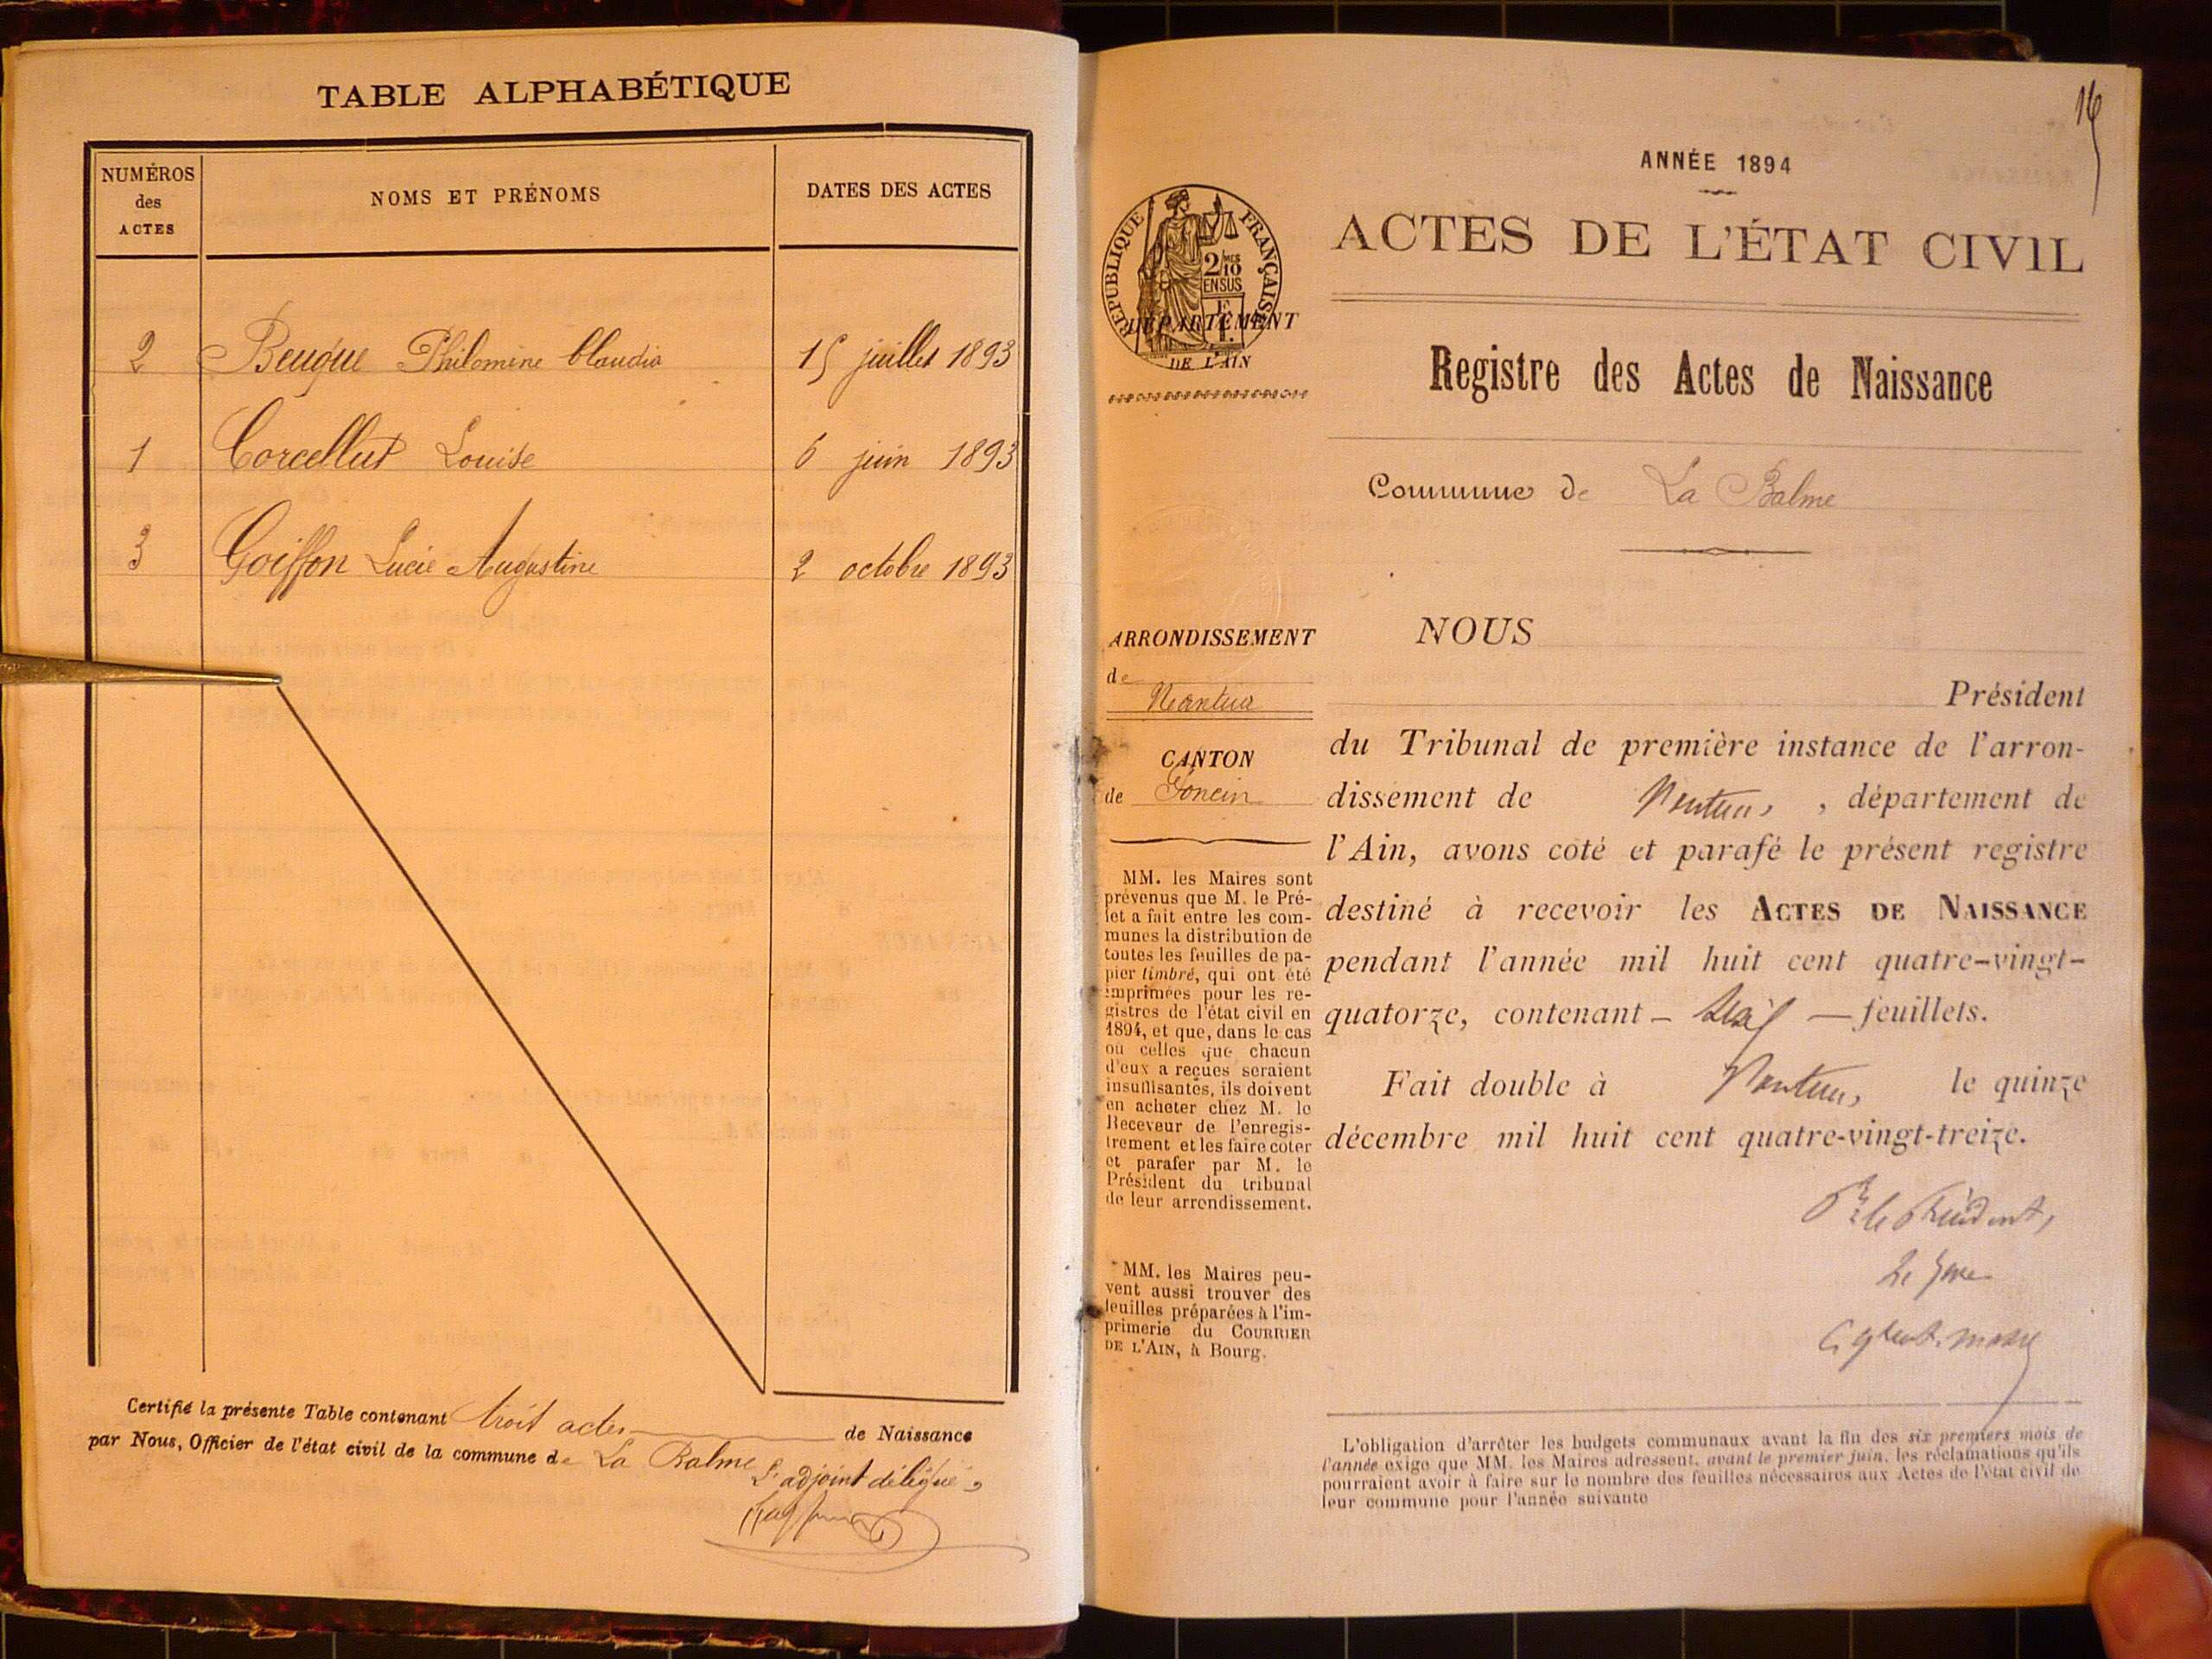 TABLE ALPHABÉTIQUE
NUMÉROS
des
ACTES
NOMS ET PRÉNOMS
DATES DES ACTES
2 Beuque Philomine Claudia 15 juillet 1893
1 Corcellut Louise 6 juin 1893
3 Goiffon Lucie Augustine 2 octobre 1893
Certifié la présente Table contenant trois actes de Naissance
par Nous, Officier de l'état civil de la commune de La Balme
L'adjoint délégué,
16
ANNÉE 1894
ACTES DE L'ÉTAT CIVIL
RÉPUBLIQUE FRANÇAISE
2/10
EN SUS
DÉPARTEMENT
DE L'AIN
Registre des Actes de Naissance
Commune de La Balme
ARRONDISSEMENT
de
Nantua
CANTON
de Izoncin
MM. les Maires sont
prévenus que M. le Pré-
fet a fait entre les com-
munes la distribution de
toutes les feuilles de pa-
pier timbré, qui ont été
imprimées pour les re-
gistres de l'état civil en
1894, et que, dans le cas
où celles que chacun
d'eux a reçues seraient
insuffisantes, ils doivent
en acheter chez M. le
Receveur de l'enregis-
trement et les faire coter
et parafer par M. le
Président du tribunal
de leur arrondissement.
MM. les Maires peu-
vent aussi trouver des
feuilles préparées à l'im-
primerie du COURRIER
DE L'AIN, à Bourg.
NOUS
Président
du Tribunal de première instance de l'arron-
dissement de Nantua, département de
l'Ain, avons coté et parafé le présent registre
destiné à recevoir les ACTES DE NAISSANCE
pendant l'année mil huit cent quatre-vingt-
quatorze, contenant — — feuillets.
Fait double à Nantua, le quinze
décembre mil huit cent quatre-vingt-treize.
Pr le Président,
Le Juge
L'obligation d'arrêter les budgets communaux avant la fin des six premiers mois de
l'année exige que MM. les Maires adressent, avant le premier juin, les réclamations qu'ils
pourraient avoir à faire sur le nombre des feuilles nécessaires aux Actes de l'état civil de
leur commune pour l'année suivante